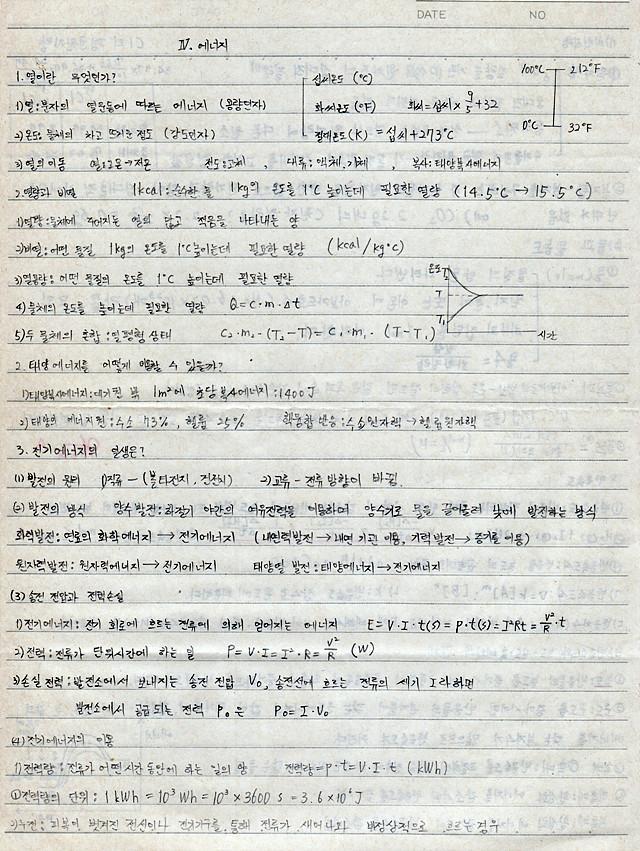 DATE NO
Ⅳ. 에너지
1. 열이란 무엇인가?
섭씨온도 (°C)
100°C 212°F
1) 열: 분자의 열운동에 따르는 에너지 (용량인자)
화씨온도 (°F) 화씨 = 섭씨 × 9/5 + 32
2) 온도: 물체의 차고 뜨거운 정도 (강도인자)
절대온도 (K) = 섭씨 + 273°C
0°C 32°F
3) 열의 이동 열: 고온 → 저온 전도: 고체, 대류: 액체, 기체, 복사: 태양복사에너지
2. 열량과 비열 1kcal: 순수한 물 1kg의 온도를 1°C 높이는데 필요한 열량 (14.5°C → 15.5°C)
1) 열량: 물체에 주어지는 열의 많고 적음을 나타내는 양
2) 비열: 어떤 물질 1kg의 온도를 1°C 높이는데 필요한 열량 (kcal/kg°C)
3) 열용량: 어떤 물질의 온도를 1°C 높이는데 필요한 열량
4) 물체의 온도를 높이는데 필요한 열량 Q = c·m·Δt
5) 두 물체의 혼합: 열평형 상태 C₂·m₂·(T₂-T) = C₁·m₁·(T-T₁)
온도 T₂ T T₁ 시간
2. 태양에너지를 어떻게 이용할 수 있을까?
1) 태양복사에너지: 대기권 밖 1m²에 초당 복사에너지: 1400J
2) 태양의 에너지원: 수소 73%, 헬륨 25% 핵융합 반응: 수소원자핵 → 헬륨원자핵
3. 전기에너지의 일생은?
(1) 발전의 원리 1) 직류 - (볼타전지, 건전지) 2) 교류 - 전류방향이 바뀜
(2) 발전의 방식 양수발전: 화정기 야간의 여유전력을 이용하여 양수기로 물을 끌어올려 낮에 발전하는 방식
화력발전: 연료의 화학에너지 → 전기에너지 (내연력발전 → 내연 기관 이용, 기력 발전 → 증기를 이용)
원자력발전: 원자력에너지 → 전기에너지 태양열 발전: 태양에너지 → 전기에너지
(3) 송전 전압과 전력손실
1) 전기에너지: 전기 회로에 흐르는 전류에 의해 얻어지는 에너지 E = V·I·t(s) = P·t(s) = I²Rt = V²/R·t
2) 전력: 전류가 단위시간에 하는 일 P = V·I = I²·R = V²/R (W)
3) 손실 전력: 발전소에서 보내지는 송전 전압 V₀, 송전선에 흐르는 전류의 세기 I라하면
발전소에서 공급되는 전력 P₀은 P₀ = I·V₀
(4) 전기에너지의 이용
1) 전력량: 전류가 어떤 시간 동안에 하는 일의 양 전력량 = P·t = V·I·t (kWh)
① 전력량의 단위: 1kWh = 10³Wh = 10³ × 3600 s = 3.6 × 10⁶J
2) 누전: 피복이 벗겨진 전선이나 전기기구를 통해 전류가 새어나와 비정상적으로 흐르는 경우